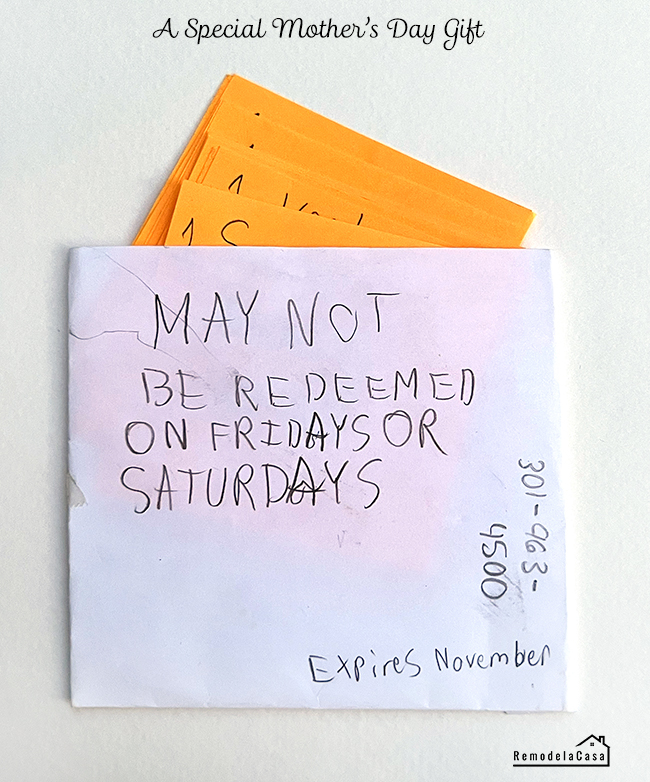 A Special Mother's Day Gift
MAY NOT
BE REDEEMED
ON FRIDAYS OR
SATURDAYS
301-963-
4500
Expires November
RemodelaCasa